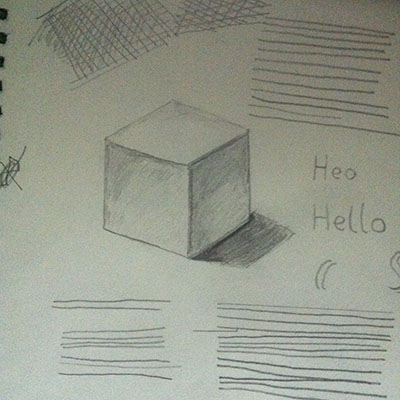 Heo
Hello